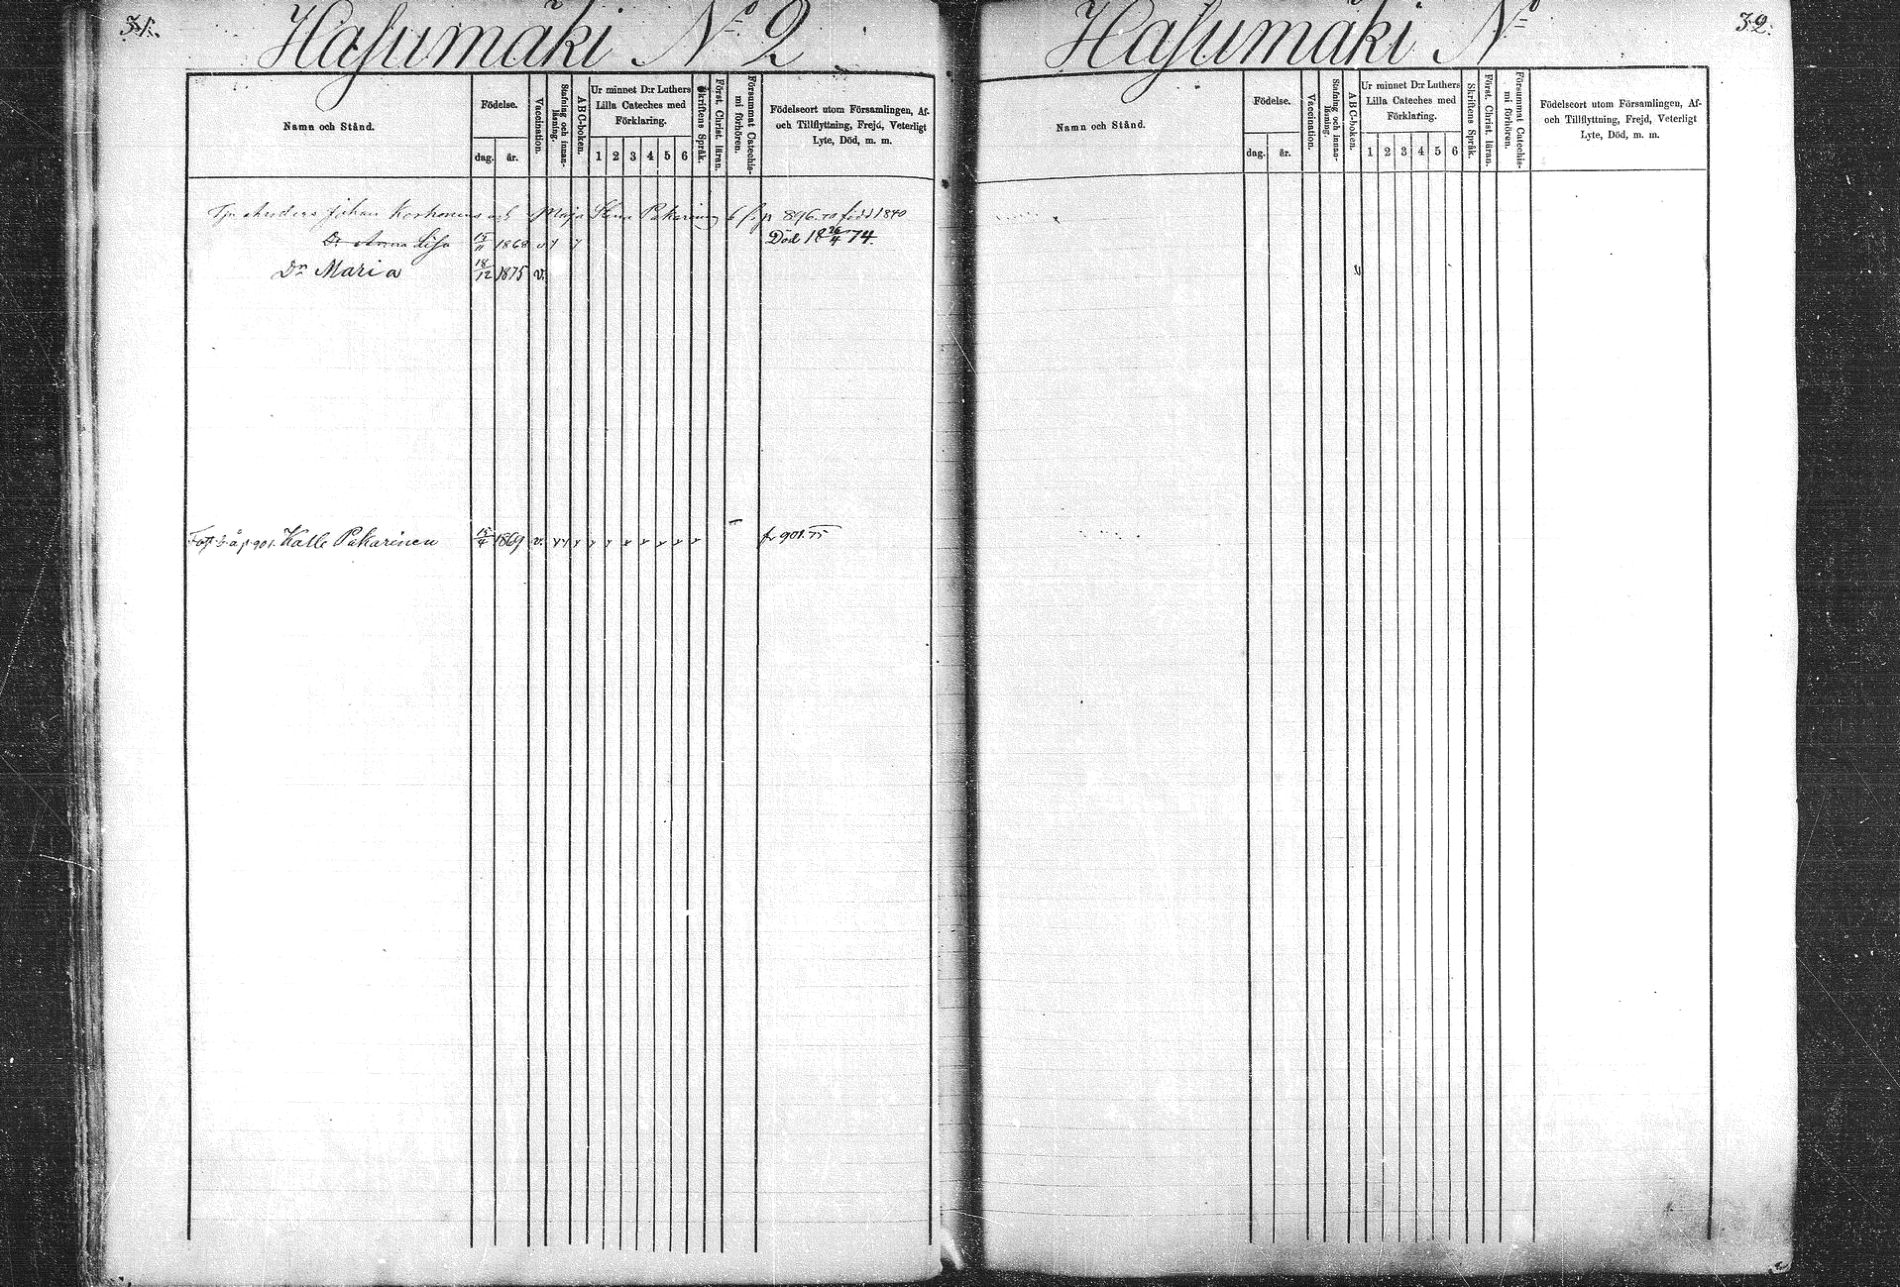 31.
Hasumäki No 2
Namn och Stånd.
Födelse.
dag.
år.
Vaccination.
Stafning och innan-
läsning.
ABC-boken.
Ur minnet D:r Luthers
Lilla Cateches med
Förklaring.
1 2 3 4 5 6
Skriftens Språk.
Först. Christ. läran.
Försummat Catechis-
mi förhören.
Födelseort utom Församlingen, Af-
och Tillflyttning, Frejd, Veterligt
Lyte, Död, m. m.
Johan Korhonen och Maja Stina Pakarinen 896. född 1840
Dr Anna Lisa 15/11 1868 v y y Död 18 26/4 74.
Dr Maria 18/12 1875 v.
p 901. Kalle Pakarinen 15/4 1869 v. y y y y y v v v v v fr 901.75
32.
Hasumäki No
Namn och Stånd.
Födelse.
dag.
år.
Vaccination.
Stafning och innan-
läsning.
ABC-boken.
Ur minnet D:r Luthers
Lilla Cateches med
Förklaring.
1 2 3 4 5 6
Skriftens Språk.
Först. Christ. läran.
Försummat Catechis-
mi förhören.
Födelseort utom Församlingen, Af-
och Tillflyttning, Frejd, Veterligt
Lyte, Död, m. m.